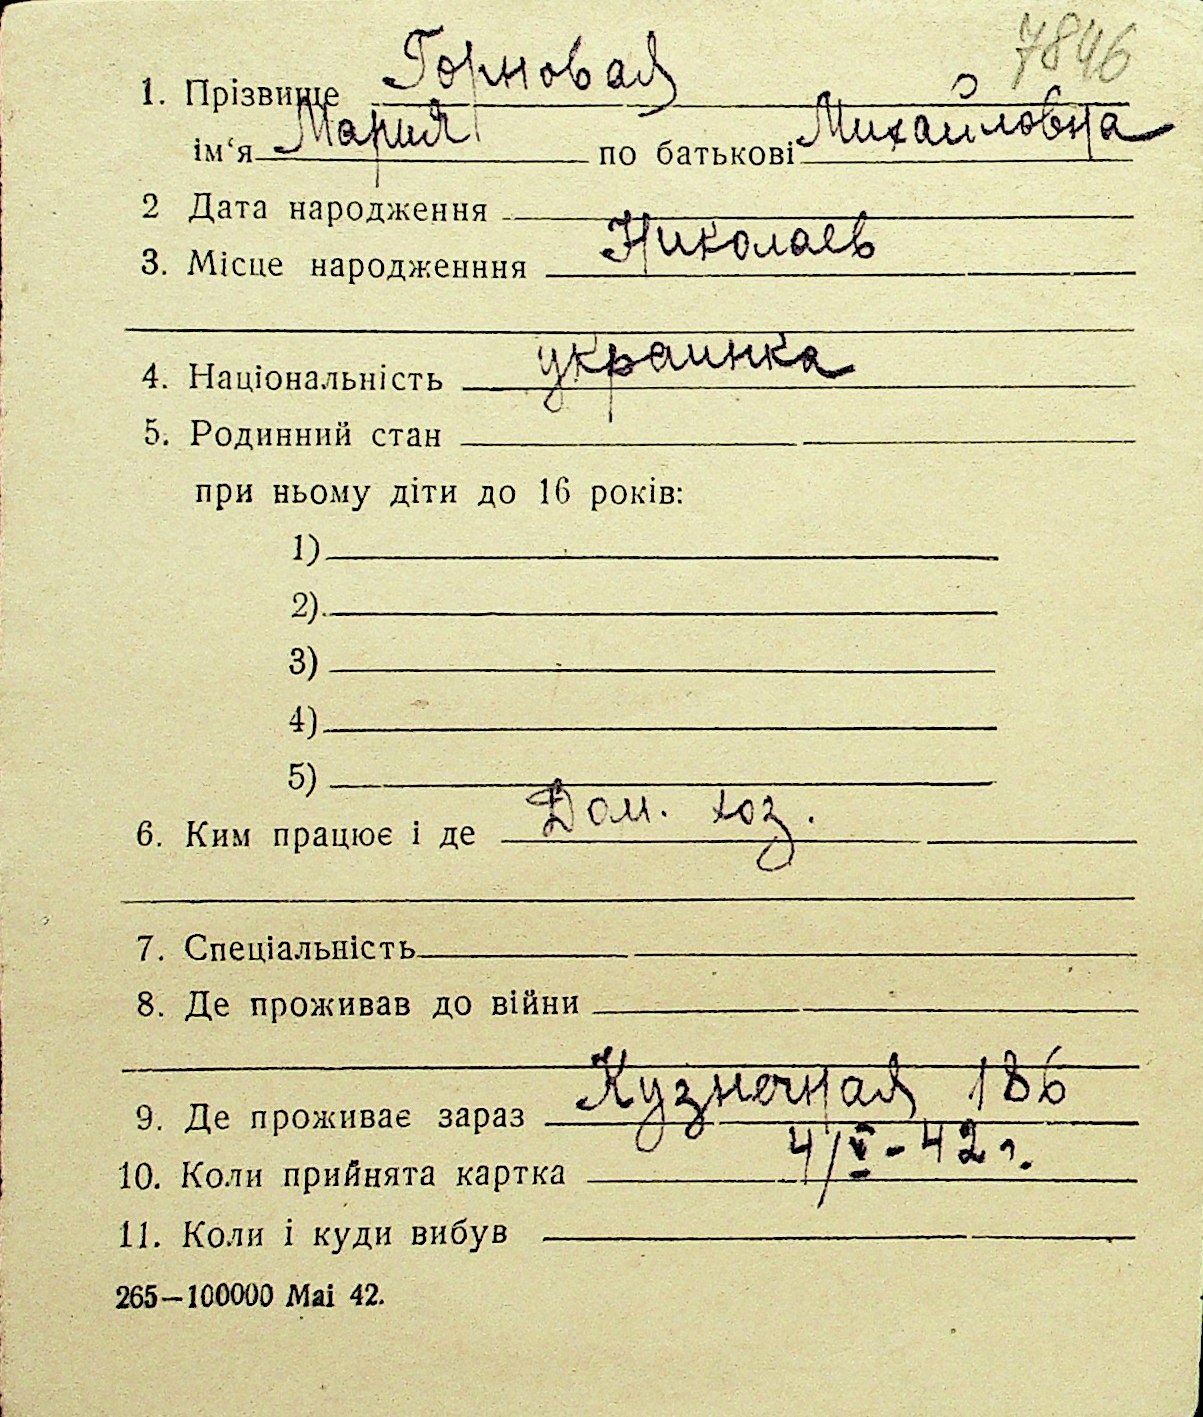 7846
1. Прізвище Горновая
ім‘я Мария по батькові Михайловна
2 Дата народження
3. Місце народженння Николаев
4. Національність украинка
5. Родинний стан
при ньому діти до 16 років:
1)
2)
3)
4)
5)
6. Ким працює і де Дом. хоз.
7. Спеціальність
8. Де проживав до війни
9. Де проживає зараз Кузнечная 186
10. Коли прийнята картка 4/V-42 г.
11. Коли і куди вибув
265—100000 Mai 42.